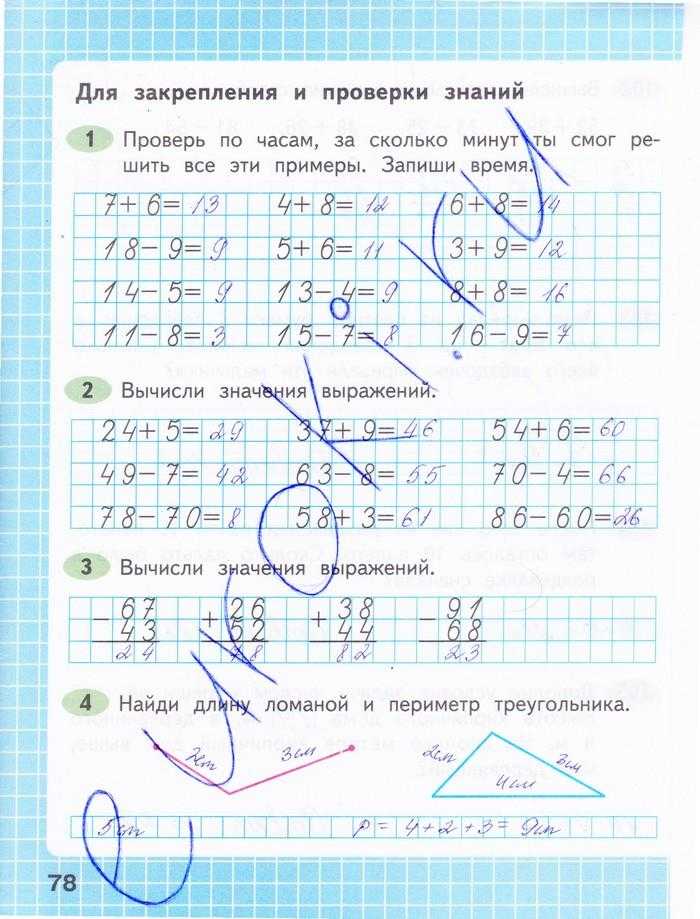 Для закрепления и проверки знаний
1 Проверь по часам, за сколько минут ты смог ре-
шить все эти примеры. Запиши время.
7+6=13 4+8=12 6+8=14
18-9=9 5+6=11 3+9=12
14-5=9 13-4=9 8+8=16
11-8=3 15-7=8 16-9=7
2 Вычисли значения выражений.
24+5=29 37+9=46 54+6=60
49-7=42 63-8=55 70-4=66
78-70=8 58+3=61 86-60=26
3 Вычисли значения выражений.
67 26 38 91
- 43 + 52 + 44 - 68
24 78 82 23
4 Найди длину ломаной и периметр треугольника.
2см 3см 2см 3см
4см
5см P = 4+2+3= 9см
78